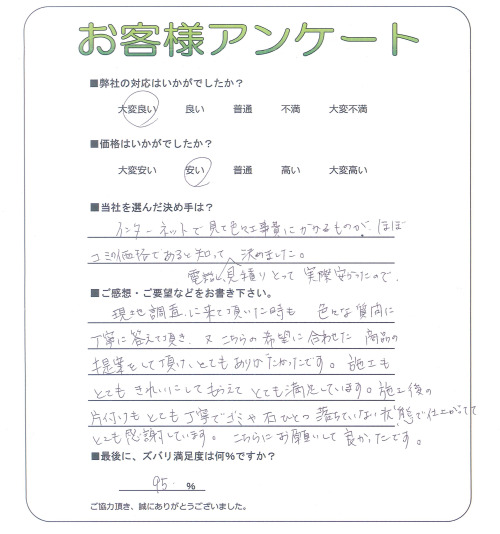 お客様アンケート
■弊社の対応はいかがでしたか？
大変良い 良い 普通 不満 大変不満
■価格はいかがでしたか？
大変安い 安い 普通 高い 大変高い
■当社を選んだ決め手は？
インターネットで見て色々工事費にかかるものが、ほぼ
コミの価格であると知って 決めました。
電話し見積りとって実際安かったので、
■ご感想・ご要望などをお書き下さい。
現地調査に来て頂いた時も 色々な質問に
丁寧に答えて頂き、又こちらの希望に合わせた 商品の
提案をして頂け、とてもありがたかったです。施工も
とてもきれいにしてもらえて とても満足しています。施工後の
片付けもとても丁寧でゴミや石ひとつ落ちていない状態で仕上がってて
とても感謝しています。 こちらにお願いして良かったです。
■最後に、ズバリ満足度は何%ですか？
95 %
ご協力頂き、誠にありがとうございました。